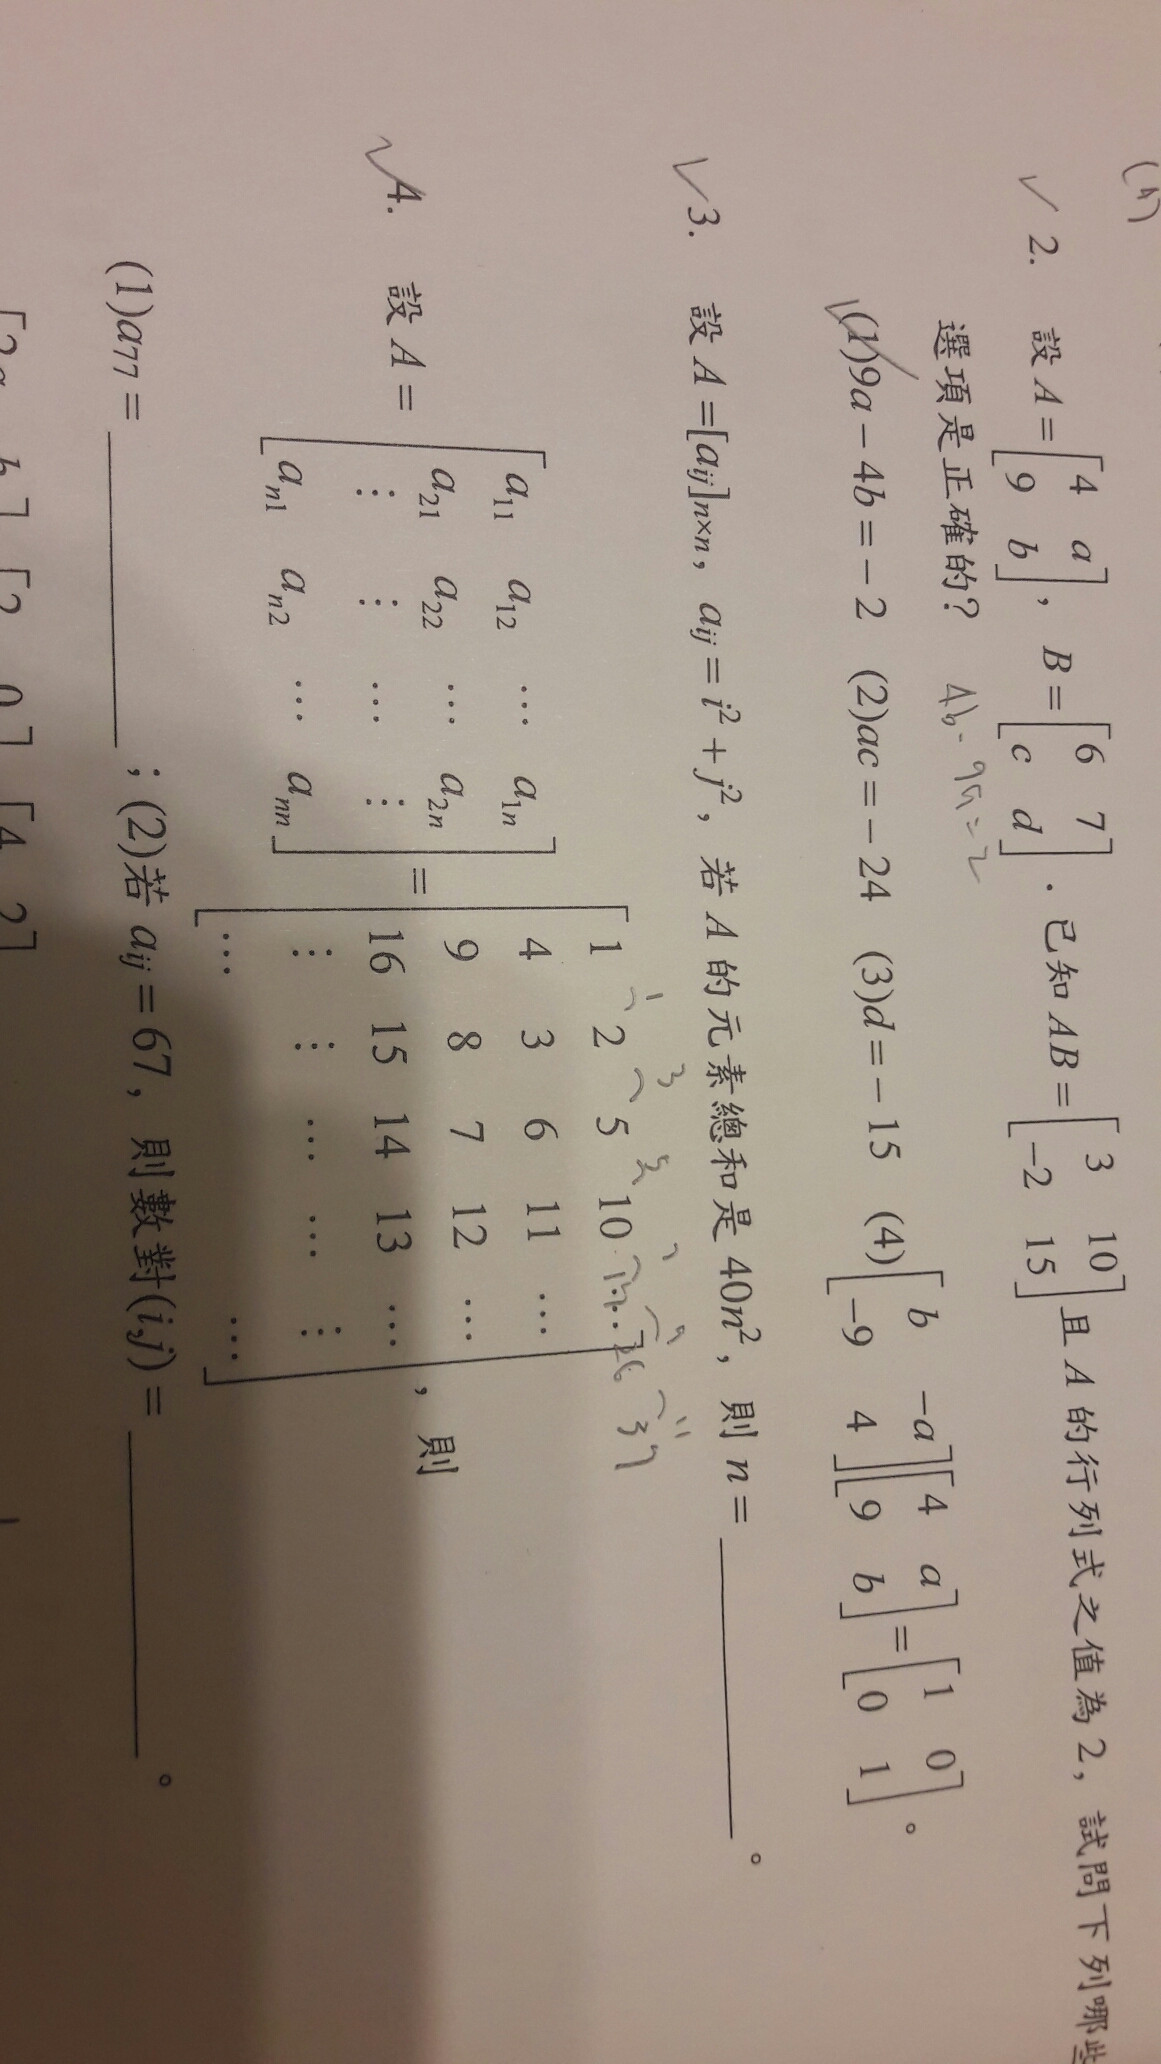 (4)
✓ 2. 設 A = [4 a; 9 b], B = [6 7; c d]. 已知 AB = [3 10; -2 15] 且 A 的行列式之值為 2, 試問下列哪些
選項是正確的? 4b - 9a = 2
✓ (1) 9a - 4b = -2 (2) ac = -24 (3) d = -15 (4) [b -a; -9 4][4 a; 9 b] = [1 0; 0 1]。
✓ 3. 設 A = [a_{ij}]_{n×n}, a_{ij} = i² + j², 若 A 的元素總和是 40n², 則 n = ________。
1 3 5 7 9 11
17 26 37
✓ 4. 設 A = [a_{11} a_{12} ⋯ a_{1n}; a_{21} a_{22} ⋯ a_{2n}; ⋮ ⋮ ⋯ ⋮; a_{n1} a_{n2} ⋯ a_{nn}] = [1 2 5 10 ⋯; 4 3 6 11 ⋯; 9 8 7 12 ⋯; 16 15 14 13 ⋯; ⋮ ⋮ ⋯ ⋯ ⋮; ⋯ ⋯], 則
(1) a_{77} = ________; (2) 若 a_{ij} = 67, 則數對 (i,j) = ________。